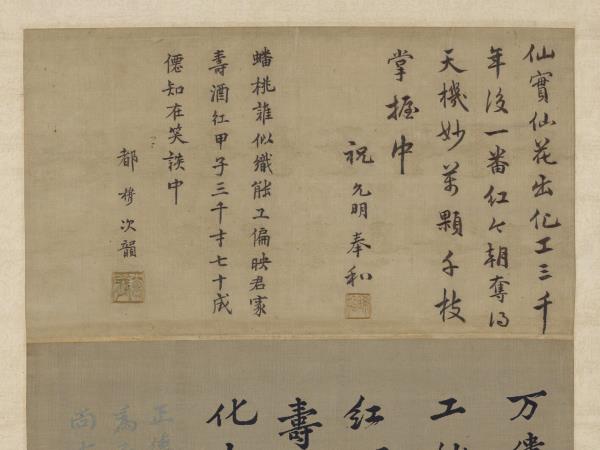 仙實仙花出化工三千
年後一番紅今朝奪得
天機妙萬顆千枝
掌握中
祝允明奉和
蟠桃誰似織能工偏映君家
壽酒紅甲子三千才七十成
僊知在笑談中
都穆次韻
万
工
紅
壽
化
正
為
尚